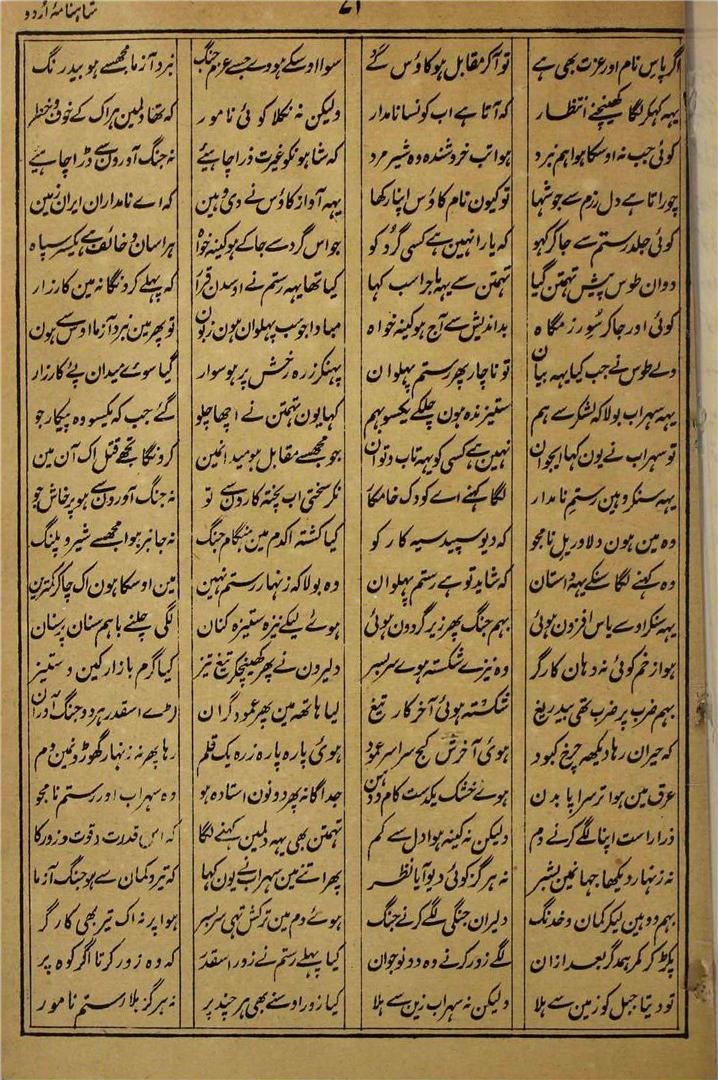 شاہنامۂ اردو ۷۱
اگر پاس نام اور عزت بھی ہے تو آکر مقابل ہو کاؤس کے سوا اوسکے ہووے جسے عزم جنگ نبرد آزما مجھسے ہو بیدرنگ
یہہ کہکر لگا کھینچنے انتظار کہ آتا ہے اب کونسا نامدار ولیکن نہ نکلا کوئی نامور کہ تھا دلمین ہر اک کے خوف و خطر
کوئی جب نہ اوسکا ہوا ہم نبرد ہوا تب خروشندہ وہ شیر مرد کہ شاہونکو غیرت ذرا چاہیئے نہ جنگ آورون سے ڈرا چاہیے
چوراتا ہے دل رزم سے جو شہا تو کیون نام کاؤس اپنا رکھا یہہ آواز کاؤس نے دی وہین کہ اے نامداران ایران زمین
کوئی جلد رستم سے جا کر کہو کہ یارا نہین ہے کسی گرد کو جو اس گرد سے جا کے ہو کینہ خواہ ہراسان و خائف ہے یکسر سپاہ
دوان طوس پیش تہمتن گیا تہمتن سے یہہ ماجرا سب کہا کیا تھا یہہ رستم نے اوسدن قرار کہ پہلے کرونگا نہ مین کارزار
کوئی اور جا کر سوے رزمگاہ بداندیش سے آج ہو کینہ خواہ مبادا جو سب پہلوان ہون زبون تو پھر مین نبرد آزما اوس سے ہون
ولے طوس نے جب کیا یہہ بیان تو ناچار پھر رستم پہلوان پہنکر زرہ رخش پر ہو سوار گیا سوے میدان پئے کارزار
یہہ سہراب بولا کہ لشکر سے ہم ستیزندہ ہون چلکے یکسو بہم کہا یون تہمتن نے اچھا چلو گئے جب کہ یکسو وہ پیکار جو
تو سہراب نے یون کہا ایجوان نہین ہے کسی کو یہہ تاب و توان جو مجھسے مقابل ہو میدانمین کرونگا تجھے قتل اک آن مین
یہہ سنکر وہین رستم نامدار لگا کہنے اے کودک خامکار نکر سختی اب پختہ کارون سے تو نہ جنگ آورون سے ہو پرخاش جو
وہ مین ہون دلاور یل نامجو کہ دیو سپید سیہ کار کو کیا کشتہ اکدم مین ہنگام جنگ نہ جانبر ہوا مجھسے شیر و پلنگ
وہ کہنے لگا سنکے یہہ داستان کہ شاید تو ہے رستم پہلوان وہ بولا کہ زنہار رستم نہین مین اوسکا ہون اک چاکر کمترین
یہہ سنکر اوسے یاس افزون ہوئی بہم جنگ پھر زیر گردون ہوئی ہوئے لیکے نیزہ ستیزہ کنان لگی چلنے باہم سنان پر سنان
ہوا زخم کوئی نہ وہان کارگر وہ نیزے شکستہ ہوے سر بسر دلیرون نے پھر کھینچکر تیغ تیز کیا گرم بازار کین و ستیز
بہم ضرب پر ضرب تھی بیدریغ شکستہ ہوئی آخر کار تیغ لیا ہاتھ مین پھر عمود گران لڑے اسقدر ہر دو جنگ آوران
کہ حیران رہا دیکھہ چرخ کبود ہوی آخرش کج سراسر عمود ہوئی پارہ پارہ زرہ یک قلم رہا پھر نہ زنہار گھوڑونمین دم
عرق مین ہوا تر سراپا بدن ہوے خشک یکدست کام و دہن جداگانہ پھر دونون استادہ ہو وہ سہراب اور رستم نامجو
ذرا راست اپنا لگے کرنے دم ولیکن نہ کینہ ہوا دل سے کم تہمتن بھی یہہ دلمین کہنے لگا کہ اس قدرت و قوت و زور کا
نہ زنہار دیکھا جہانمین بشر نہ ہرگز کوئی دیو آیا نظر پھر اتنے مین سہراب نے یون کہا کہ تیر و کمان سے ہو جنگ آزما
بہم دوہین لیکر کمان و خدنگ دلیران جنگی لگے کرنے جنگ ہوئے دم مین ترکش تہی سر بسر ہوا پر نہ اک تیر بھی کارگر
پکڑ کر کمر ہمدگر بعد ازان لگے زور کرنے وہ دو نوجوان کیا پہلے رستم نے زور اسقدر کہ وہ زور کرتا اگر کوہ پر
تو دیتا جبل کو زمین سے ہلا ولیکن نہ سہراب زین سے ہلا کیا زور اوسنے بھی ہر چند پر نہ ہرگز ہلا رستم نامور